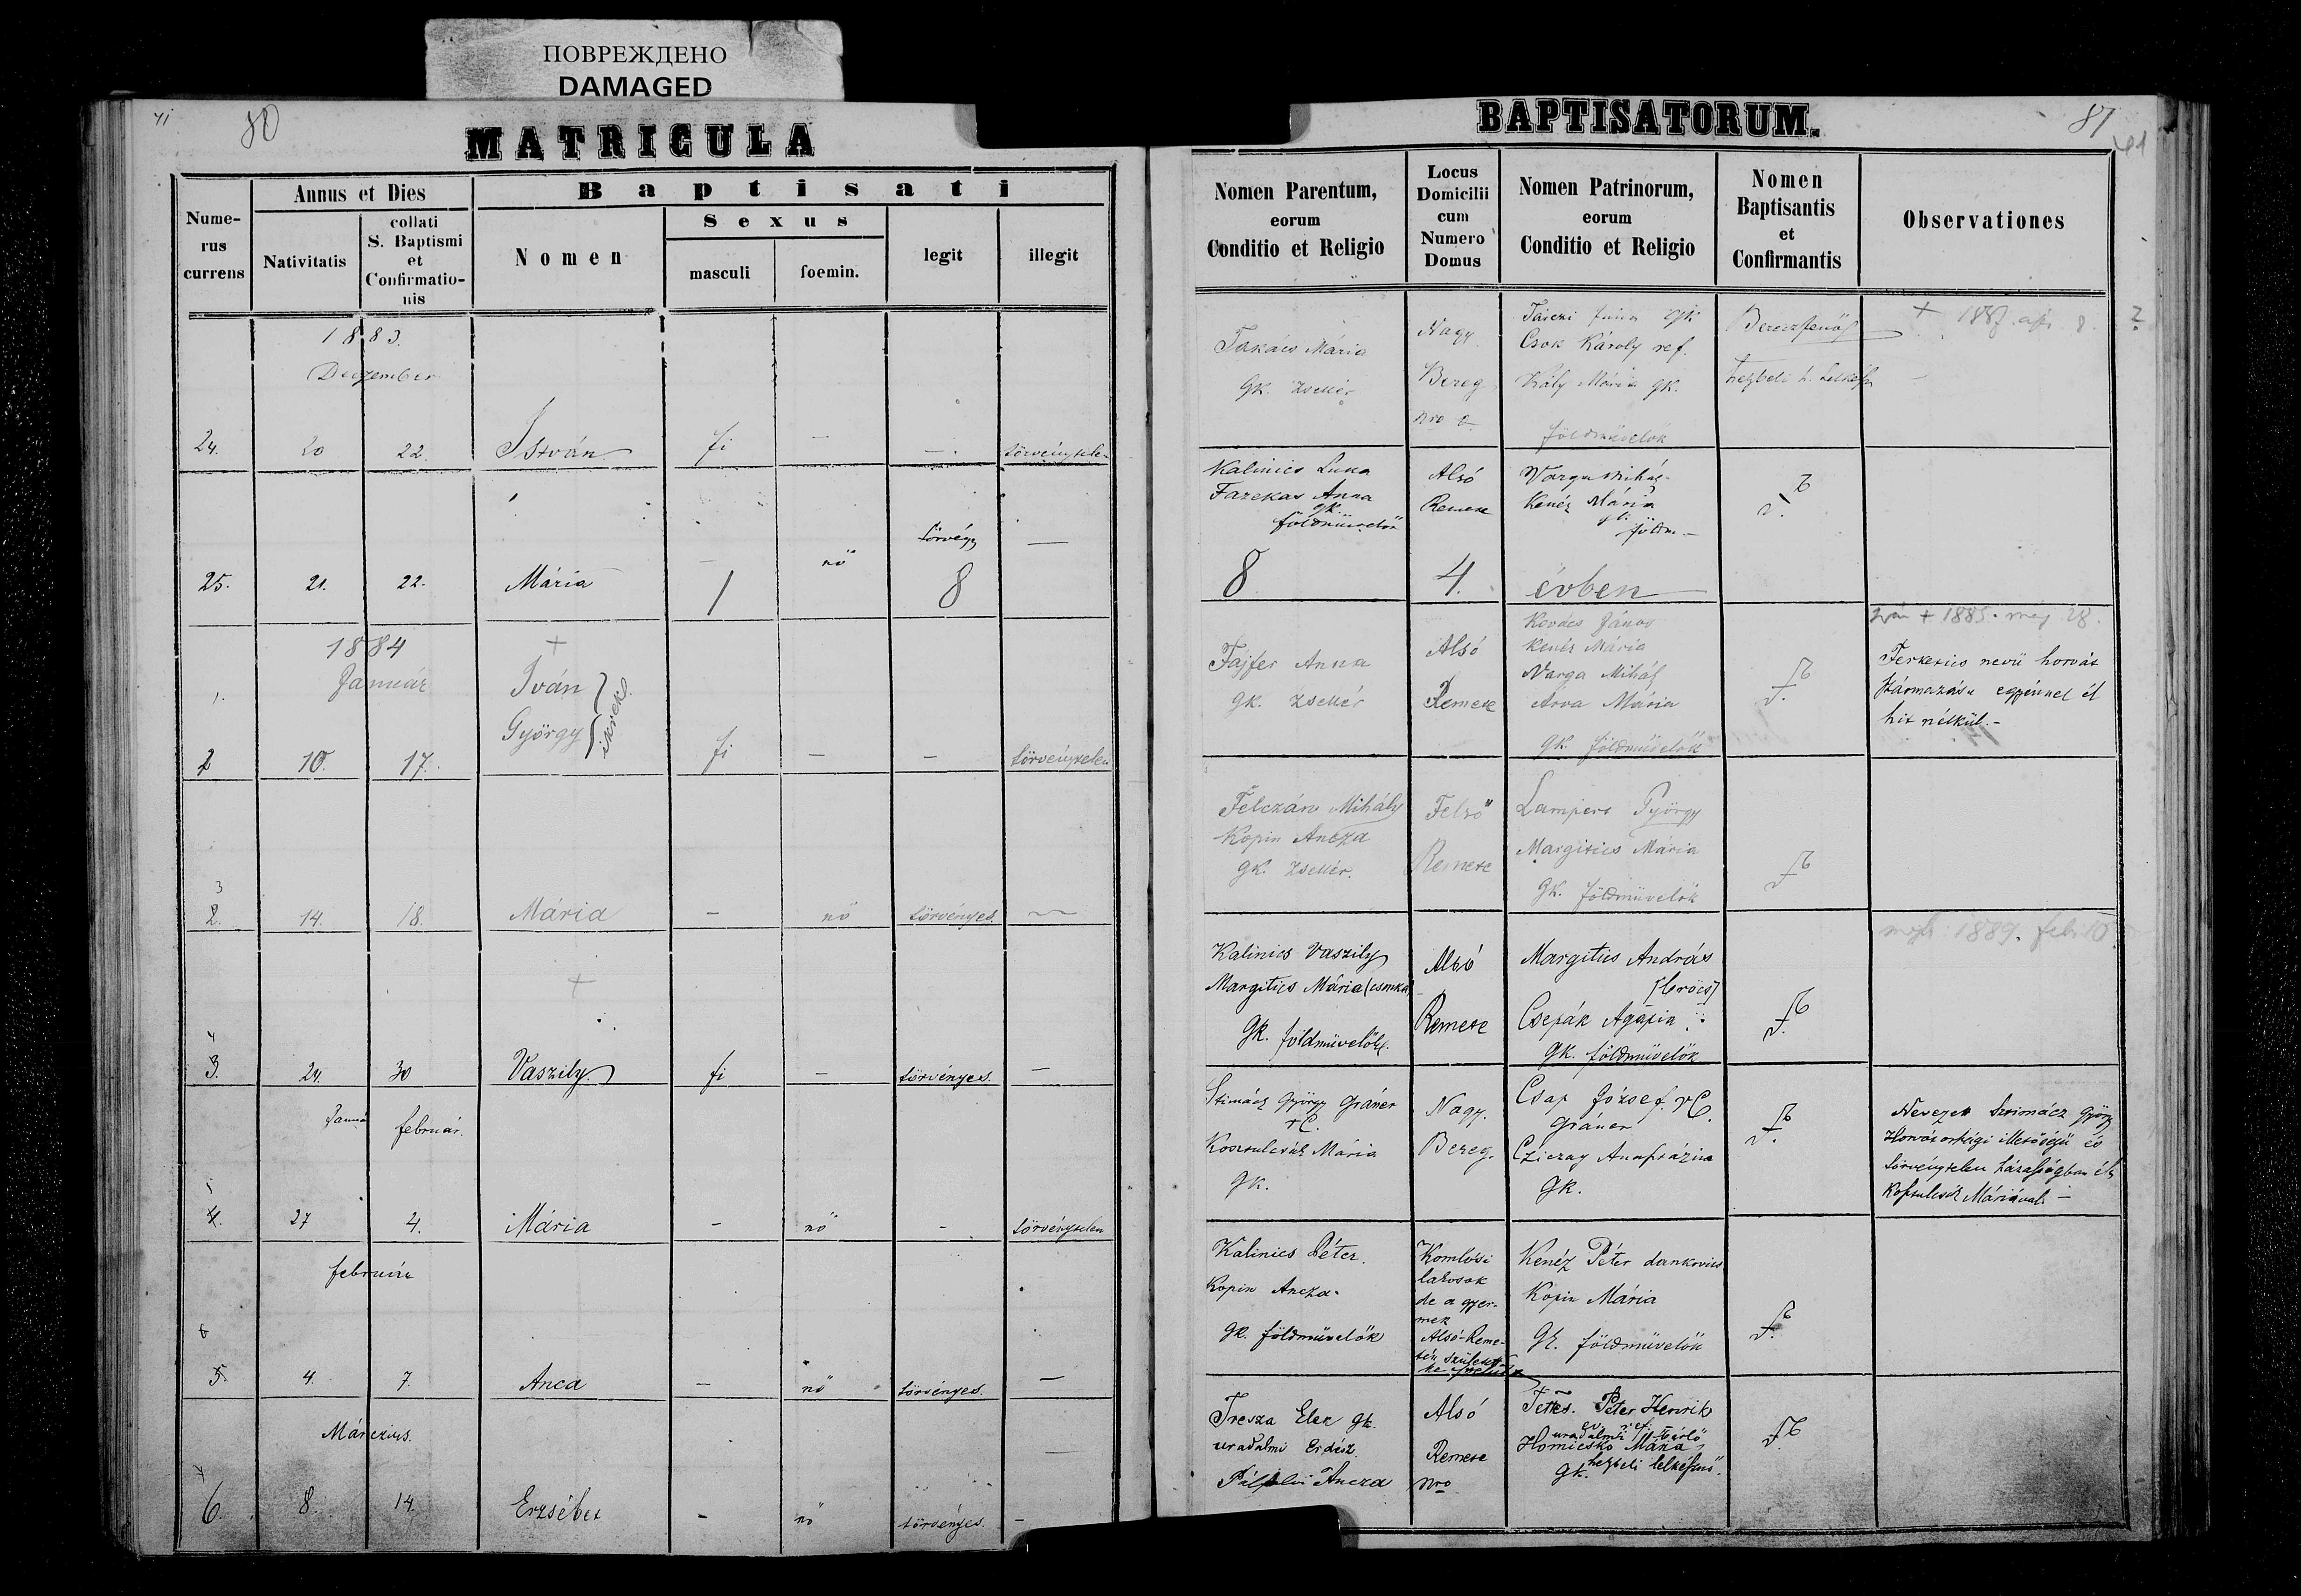 ПОВРЕЖДЕНО
DAMAGED
41
80
MATRICULA
Numerus currens
Annus et Dies
Nativitatis
collati
S. Baptismi
et
Confirmatio-
nis
Baptisati
Nomen
Sexus
masculi
foemin.
legit
illegit
1883.
Deczember
24. 20 22. István fi — —. törvénytele-
törvény
25. 21. 22. Mária nö —
1 8
1884
Január
+
1. Iván
György ikrek
2 10. 17. fi — — törvénytelen
3
2. 14. 18. Mária — nö törvényes. —
+
4
3. 24. 30 Vaszily fi — törvényes. —
Januá
február.
5
4. 27 4. Mária — nö — törvénytelen
február
6
5. 4. 7. Anca — nö törvényes. —
Márczius.
7
6. 8. 14. Erzsébet — nö törvényes. —
BAPTISATORUM.
87
Nomen Parentum,
eorum
Conditio et Religio
Locus
Domicilii
cum
Numero
Domus
Nomen Patrinorum,
eorum
Conditio et Religio
Nomen
Baptisantis
et
Confirmantis
Observationes
Takács Mária
Gk. zsellér
Nagy
Bereg
nro
gk
Csok Károly ref.
Mária gk.
földmüvelők
helybeli
+ 1887. apr. 8. ?
Kalinics Luka
Fazekas Anna
gk.
földmüvelők
Alsó
Remete
Varga Mihály
Kenéz Mária
gk.
földm.—
8 4. évben
Fájfer Anna
gk. zsellér
Alsó
Remete
Kovács János
Kenéz Mária
Varga Mihály
Árva Mária
gk. földmüvelők
Iván + 1885. maj 28.
nevü horvát
származásu egyénnel él
hit nélkül.—
Felczán Mihály
Kopin Ancza
gk. zsellér.
Felső
Remete
Lampers György
Margitics Mária
gk. földmüvelők
Kalinics Vaszily
Margitics Mária (csonka
gk. földmüvelők.
Alsó
Remete
Margitics András
Csepák Agápia
gk. földmüvelők
1889. feb. 10.
Stimácz György Gráner
r.C.
Mária
gk.
Nagy.
Bereg.
Csap József. r.C.
Gráner
Cziczay Anasztázia
gk.
Nevezett Stimácz György
Horvátországi illetőségü és
törvénytelen házasságban él
Máriával. —
Kalinics Péter.
Kopin Ancza.
gk. földmüvelők
Komlósi
lakosok
de a gyer-
mek
Alsó-Reme-
tén született
Kenéz Péter dankovics
Kopin Mária
Gk. földmüvelők
Tresza Elek gk.
uradalmi Erdész
Ancza
Alsó
Remete
Nro
Péter Henrik
ev. ref.
uradalmi
Homicskó Mária
gk. helybeli lelkésznő.